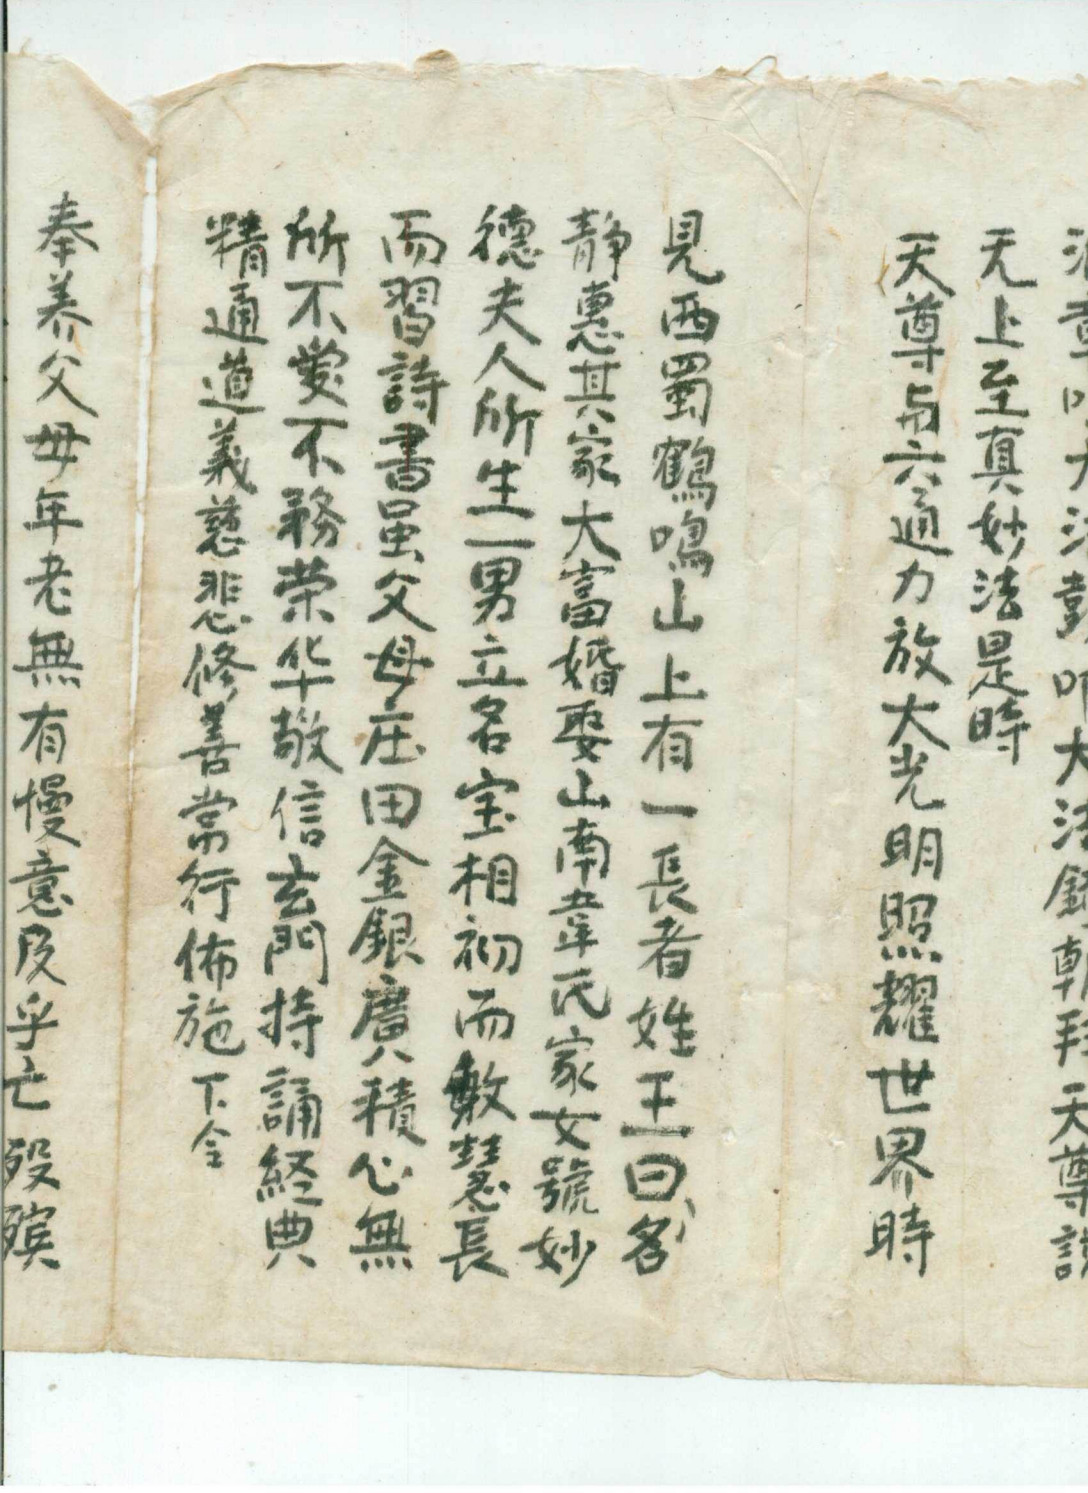 大法鼓吹大法銀朝拜天尊説
无上至真妙法是時
天尊与六通力放大光明照耀世界時
見西蜀鶴鳴山上有一長者姓王曰名
静惠其家大富婚娶山南韋氏家女號妙
德夫人所生一男立名宝相初而敏慧長
而習詩書虽父母庄田金銀廣積心無
所不愛不務荣华敬信玄門持誦経典
精通道義慈悲修善常行佈施下令
奉养父母年老無有慢意及乎亡殁殡